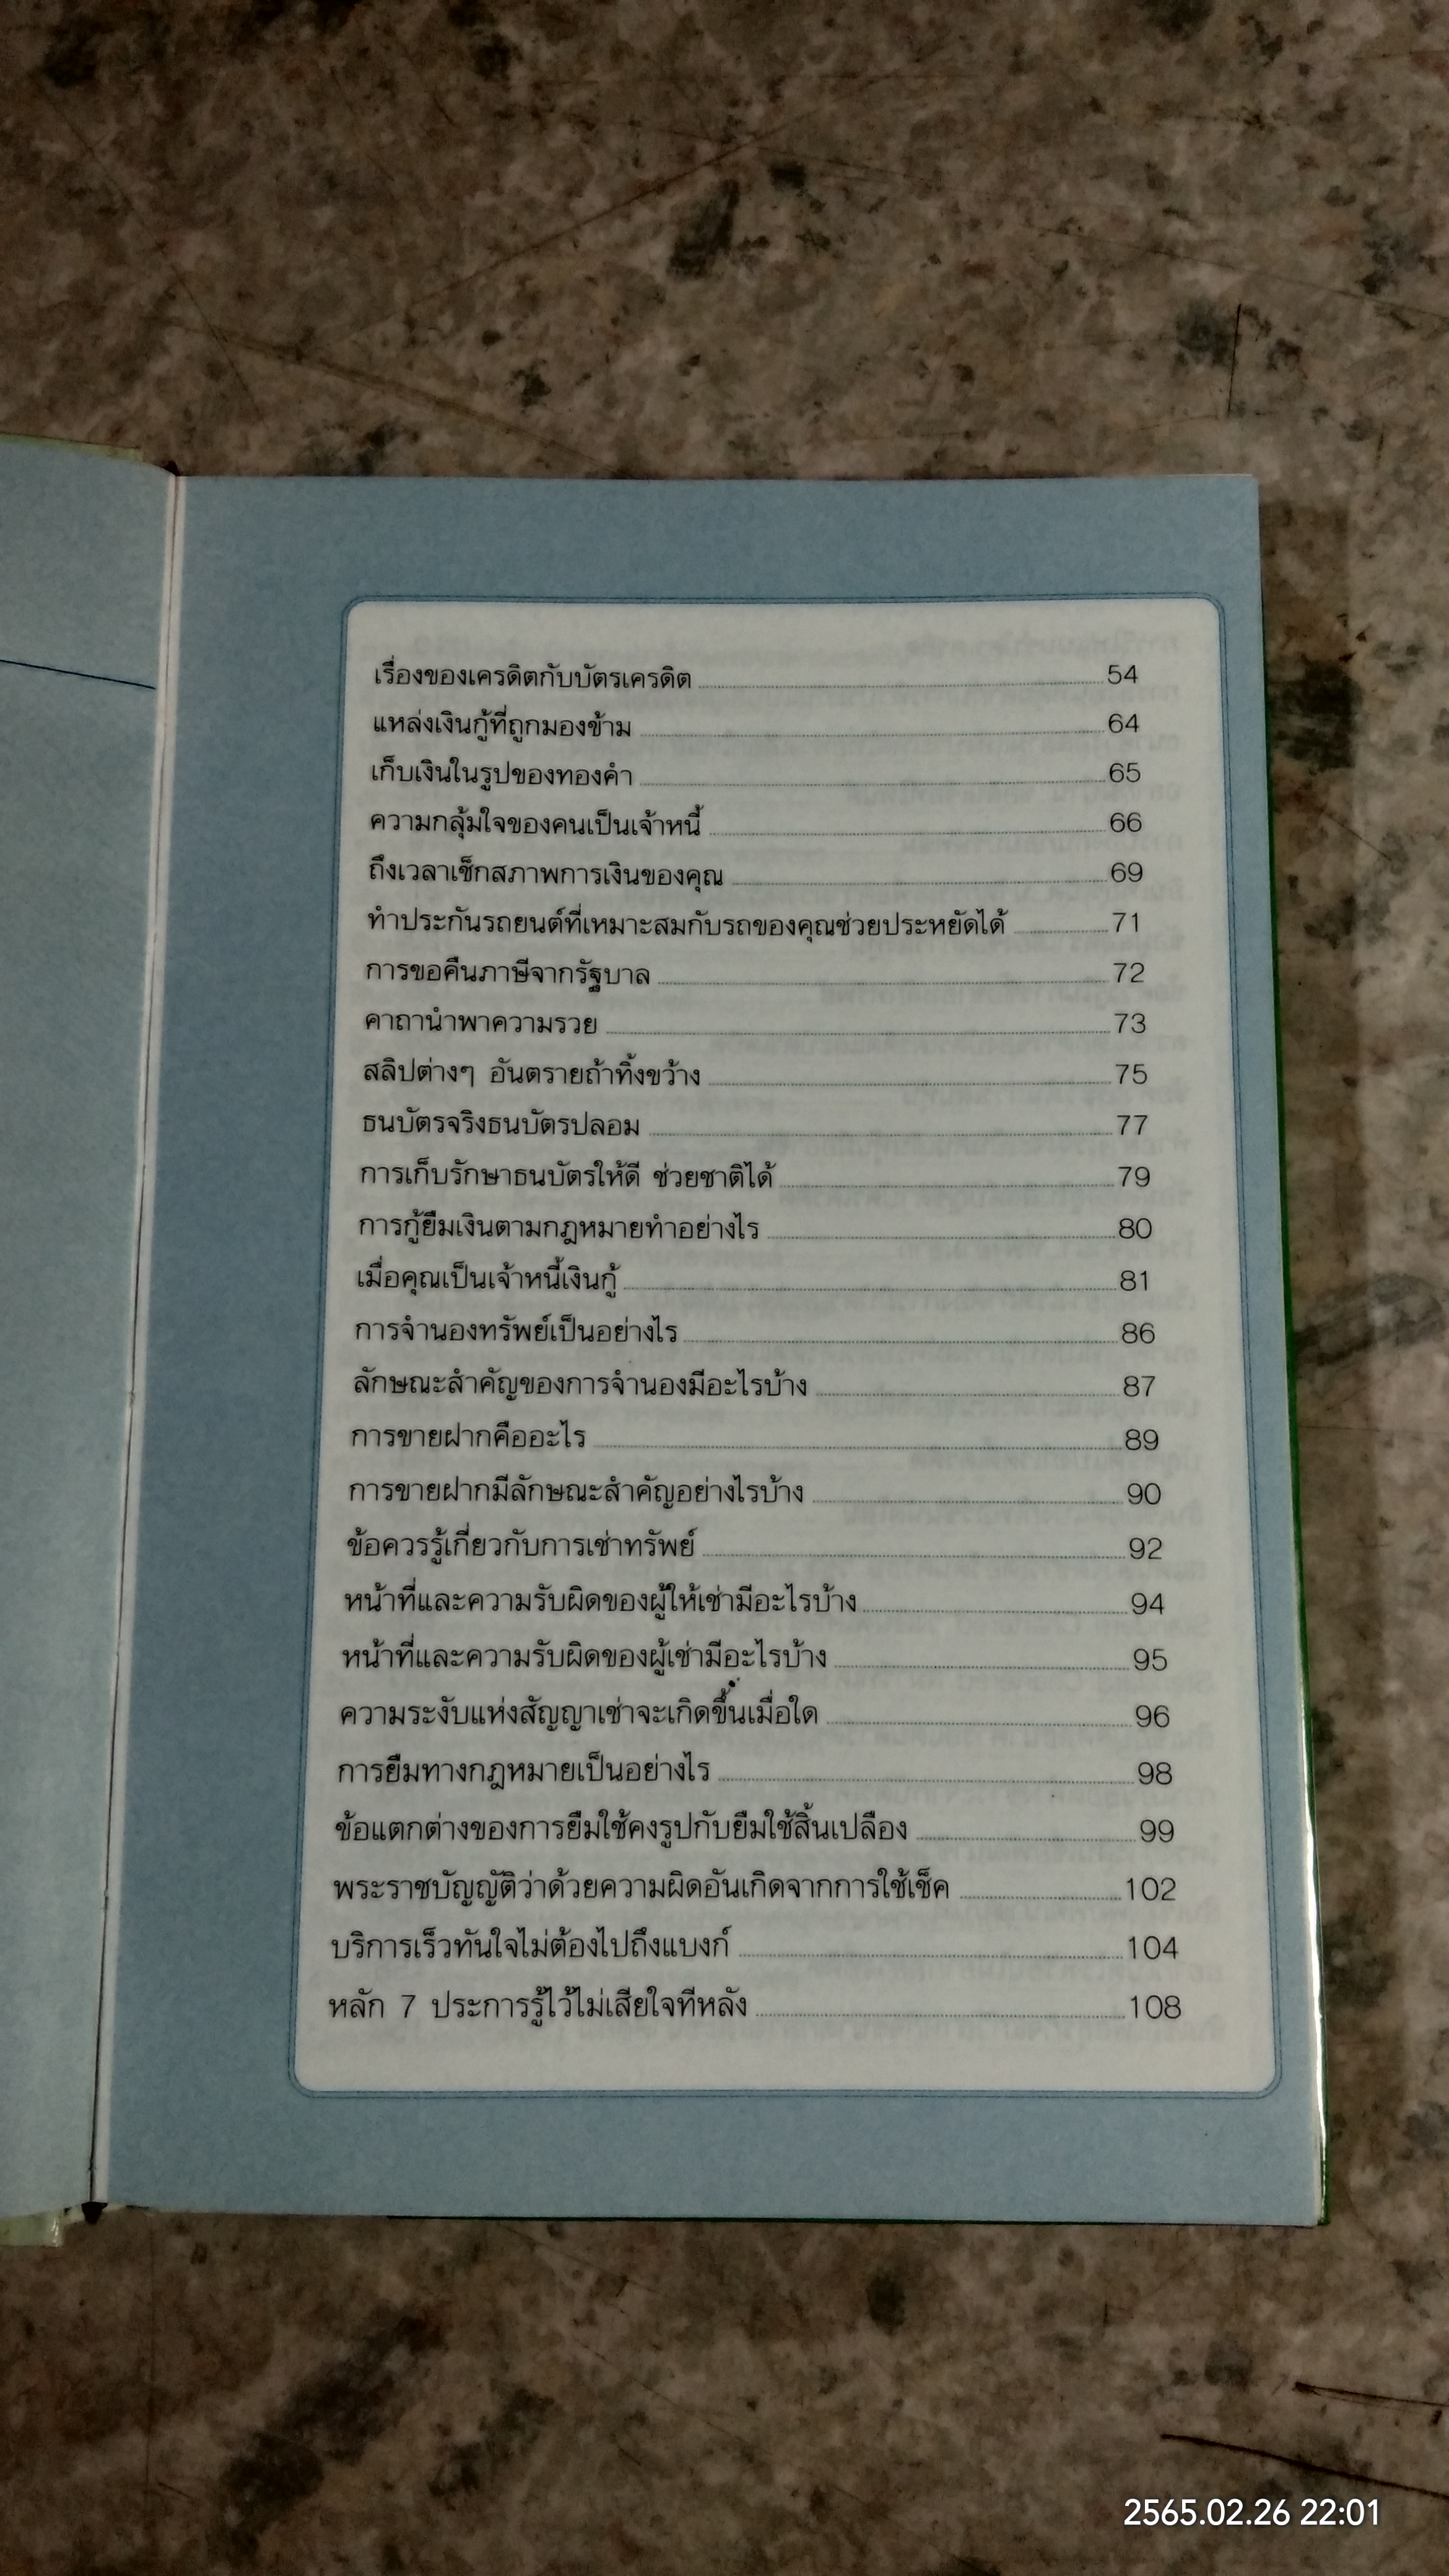 เรื่องของเครดิตกับบัตรเครดิต 54
แหล่งเงินกู้ที่ถูกมองข้าม 64
เก็บเงินในรูปของทองคำ 65
ความกลุ้มใจของคนเป็นเจ้าหนี้ 66
ถึงเวลาเช็กสภาพการเงินของคุณ 69
ทำประกันรถยนต์ที่เหมาะสมกับรถของคุณช่วยประหยัดได้ 71
การขอคืนภาษีจากรัฐบาล 72
คาถานำพาความรวย 73
สลิปต่างๆ อันตรายถ้าทิ้งขว้าง 75
ธนบัตรจริงธนบัตรปลอม 77
การเก็บรักษาธนบัตรให้ดี ช่วยชาติได้ 79
การกู้ยืมเงินตามกฎหมายทำอย่างไร 80
เมื่อคุณเป็นเจ้าหนี้เงินกู้ 81
การจำนองทรัพย์เป็นอย่างไร 86
ลักษณะสำคัญของการจำนองมีอะไรบ้าง 87
การขายฝากคืออะไร 89
การขายฝากมีลักษณะสำคัญอย่างไรบ้าง 90
ข้อควรรู้เกี่ยวกับการเช่าทรัพย์ 92
หน้าที่และความรับผิดของผู้ให้เช่ามีอะไรบ้าง 94
หน้าที่และความรับผิดของผู้เช่ามีอะไรบ้าง 95
ความระงับแห่งสัญญาเช่าจะเกิดขึ้นเมื่อใด 96
การยืมทางกฎหมายเป็นอย่างไร 98
ข้อแตกต่างของการยืมใช้คงรูปกับยืมใช้สิ้นเปลือง 99
พระราชบัญญัติว่าด้วยความผิดอันเกิดจากการใช้เช็ค 102
บริการเร็วทันใจไม่ต้องไปถึงแบงก์ 104
หลัก 7 ประการรู้ไว้ไม่เสียใจทีหลัง 108
2565.02.26 22:01